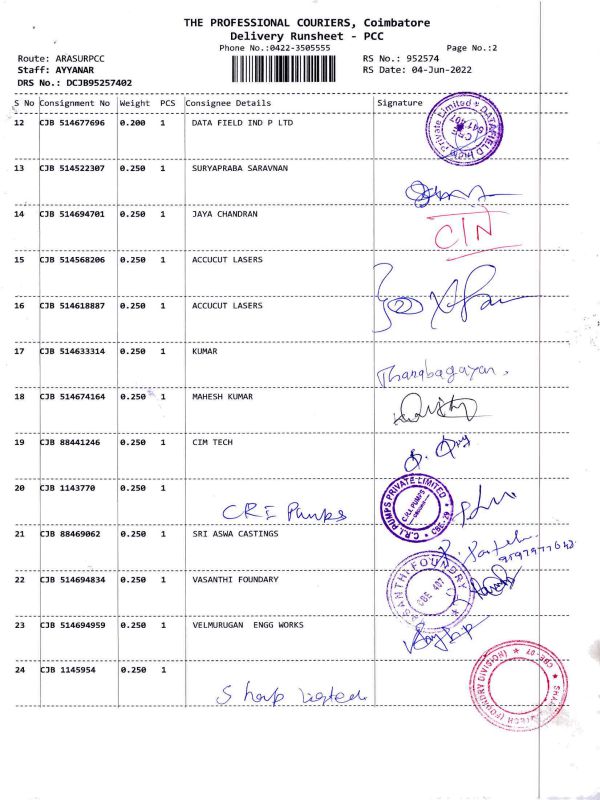 THE PROFESSIONAL COURIERS, Coimbatore
Delivery Runsheet - PCC
Phone No.:0422-3505555 Page No.:2
Route: ARASURPCC RS No.: 952574
Staff: AYYANAR RS Date: 04-Jun-2022
DRS No.: DCJB95257402
S No Consignment No Weight PCS Consignee Details Signature
12 CJB 514677696 0.200 1 DATA FIELD IND P LTD
13 CJB 514522307 0.250 1 SURYAPRABA SARAVNAN
14 CJB 514694701 0.250 1 JAYA CHANDRAN
15 CJB 514568206 0.250 1 ACCUCUT LASERS
16 CJB 514618887 0.250 1 ACCUCUT LASERS
2
17 CJB 514633314 0.250 1 KUMAR
18 CJB 514674164 0.250 1 MAHESH KUMAR
19 CJB 88441246 0.250 1 CIM TECH
20 CJB 1143770 0.250 1
CRI Pumps
C.R.I. PUMPS PRIVATE LIMITED
21 CJB 88469062 0.250 1 SRI ASWA CASTINGS
22 CJB 514694834 0.250 1 VASANTHI FOUNDARY
CBE 407
23 CJB 514694959 0.250 1 VELMURUGAN ENGG WORKS
24 CJB 1145954 0.250 1
(FOUNDRY DIVISION) ★ CBE-07 ★